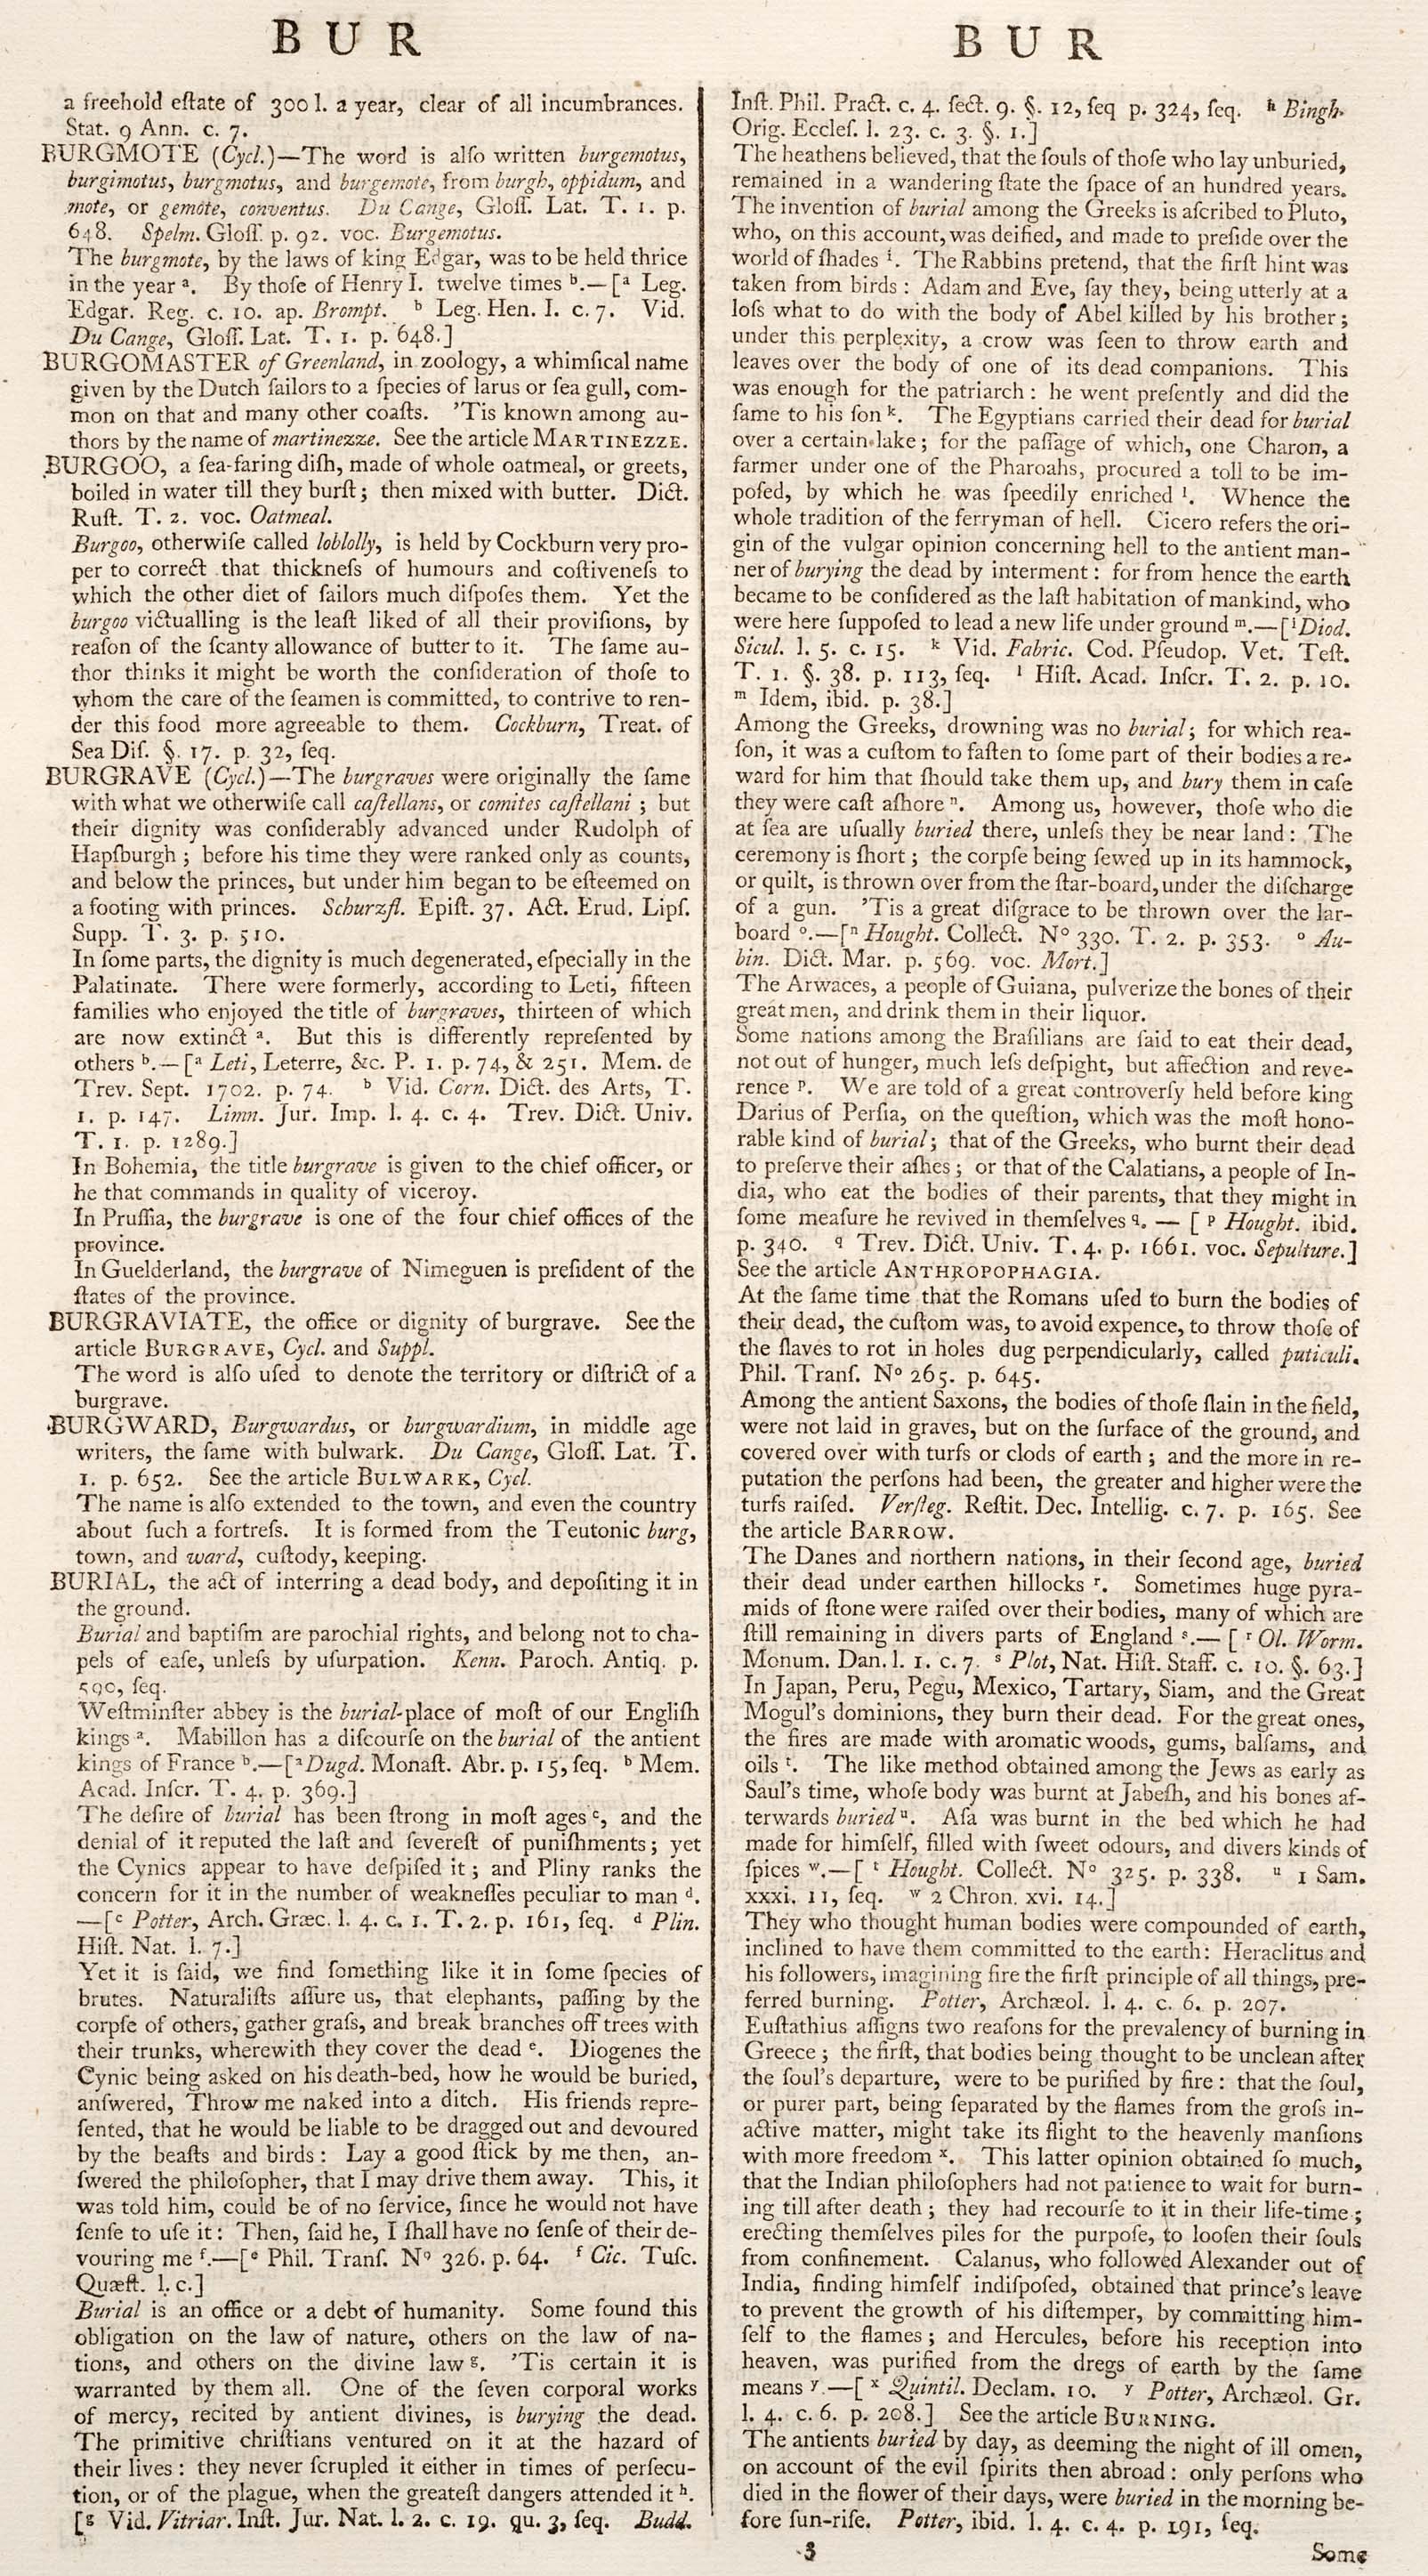 BUR
a freehold eſtate of 300 l. a year, clear of all incumbrances.
Stat. 9 Ann. c. 7.
BURGMOTE (Cycl.)—The word is alſo written burgemotus,
burgimotus, burgmotus, and burgemote, from burgh, oppidum, and
mote, or gemote, conventus. Du Cange, Gloſſ. Lat. T. 1. p.
648. Spelm. Gloſſ. p. 92. voc. Burgemotus.
The burgmote, by the laws of king Edgar, was to be held thrice
in the year ᵃ. By thoſe of Henry I. twelve times ᵇ.—[ᵃ Leg.
Edgar. Reg. c. 10. ap. Brompt. ᵇ Leg. Hen. I. c. 7. Vid.
Du Cange, Gloſſ. Lat. T. 1. p. 648.]
BURGOMASTER of Greenland, in zoology, a whimſical name
given by the Dutch ſailors to a ſpecies of larus or ſea gull, com-
mon on that and many other coaſts. 'Tis known among au-
thors by the name of martinezze. See the article MARTINEZZE.
BURGOO, a ſea-faring diſh, made of whole oatmeal, or greets,
boiled in water till they burſt; then mixed with butter. Dict.
Ruſt. T. 2. voc. Oatmeal.
Burgoo, otherwiſe called loblolly, is held by Cockburn very pro-
per to correct that thickneſs of humours and coſtiveneſs to
which the other diet of ſailors much diſpoſes them. Yet the
burgoo victualling is the leaſt liked of all their proviſions, by
reaſon of the ſcanty allowance of butter to it. The ſame au-
thor thinks it might be worth the conſideration of thoſe to
whom the care of the ſeamen is committed, to contrive to ren-
der this food more agreeable to them. Cockburn, Treat. of
Sea Diſ. §. 17. p. 32, ſeq.
BURGRAVE (Cycl.)—The burgraves were originally the ſame
with what we otherwiſe call caſtellans, or comites caſtellani; but
their dignity was conſiderably advanced under Rudolph of
Hapſburgh; before his time they were ranked only as counts,
and below the princes, but under him began to be eſteemed on
a footing with princes. Schurzfl. Epiſt. 37. Act. Erud. Lipſ.
Supp. T. 3. p. 510.
In ſome parts, the dignity is much degenerated, eſpecially in the
Palatinate. There were formerly, according to Leti, fifteen
families who enjoyed the title of burgraves, thirteen of which
are now extinct ᵃ. But this is differently repreſented by
others ᵇ.—[ᵃ Leti, Leterre, &c. P. 1. p. 74, & 251. Mem. de
Trev. Sept. 1702. p. 74. ᵇ Vid. Corn. Dict. des Arts, T.
1. p. 147. Limn. Jur. Imp. l. 4. c. 4. Trev. Dict. Univ.
T. 1. p. 1289.]
In Bohemia, the title burgrave is given to the chief officer, or
he that commands in quality of viceroy.
In Pruſſia, the burgrave is one of the four chief offices of the
province.
In Guelderland, the burgrave of Nimeguen is preſident of the
ſtates of the province.
BURGRAVIATE, the office or dignity of burgrave. See the
article BURGRAVE, Cycl. and Suppl.
The word is alſo uſed to denote the territory or diſtrict of a
burgrave.
BURGWARD, Burgwardus, or burgwardium, in middle age
writers, the ſame with bulwark. Du Cange, Gloſſ. Lat. T.
1. p. 652. See the article BULWARK, Cycl.
The name is alſo extended to the town, and even the country
about ſuch a fortreſs. It is formed from the Teutonic burg,
town, and ward, cuſtody, keeping.
BURIAL, the act of interring a dead body, and depoſiting it in
the ground.
Burial and baptiſm are parochial rights, and belong not to cha-
pels of eaſe, unleſs by uſurpation. Kenn. Paroch. Antiq. p.
590, ſeq.
Weſtminſter abbey is the burial-place of moſt of our Engliſh
kings ᵃ. Mabillon has a diſcourſe on the burial of the antient
kings of France ᵇ.—[ᵃ Dugd. Monaſt. Abr. p. 15, ſeq. ᵇ Mem.
Acad. Inſcr. T. 4. p. 369.]
The deſire of burial has been ſtrong in moſt ages ᶜ, and the
denial of it reputed the laſt and ſevereſt of puniſhments; yet
the Cynics appear to have deſpiſed it; and Pliny ranks the
concern for it in the number of weakneſſes peculiar to man ᵈ.
—[ᶜ Potter, Arch. Græc. l. 4. c. 1. T. 2. p. 161, ſeq. ᵈ Plin.
Hiſt. Nat. l. 7.]
Yet it is ſaid, we find ſomething like it in ſome ſpecies of
brutes. Naturaliſts aſſure us, that elephants, paſſing by the
corpſe of others, gather graſs, and break branches off trees with
their trunks, wherewith they cover the dead ᵉ. Diogenes the
Cynic being asked on his death-bed, how he would be buried,
anſwered, Throw me naked into a ditch. His friends repre-
ſented, that he would be liable to be dragged out and devoured
by the beaſts and birds: Lay a good ſtick by me then, an-
ſwered the philoſopher, that I may drive them away. This, it
was told him, could be of no ſervice, ſince he would not have
ſenſe to uſe it: Then, ſaid he, I ſhall have no ſenſe of their de-
vouring me ᶠ.—[ᵉ Phil. Tranſ. Nº 326. p. 64. ᶠ Cic. Tuſc.
Quæſt. l. c.]
Burial is an office or a debt of humanity. Some found this
obligation on the law of nature, others on the law of na-
tions, and others on the divine law ᵍ. 'Tis certain it is
warranted by them all. One of the ſeven corporal works
of mercy, recited by antient divines, is burying the dead.
The primitive chriſtians ventured on it at the hazard of
their lives: they never ſcrupled it either in times of perſecu-
tion, or of the plague, when the greateſt dangers attended it ʰ.
[ᵍ Vid. Vitriar. Inſt. Jur. Nat. l. 2. c. 19. qu. 3, ſeq. Budd.
BUR
Inſt. Phil. Pract. c. 4. ſect. 9. §. 12, ſeq p. 324, ſeq. ʰ Bingh.
Orig. Eccleſ. l. 23. c. 3. §. 1.]
The heathens believed, that the ſouls of thoſe who lay unburied,
remained in a wandering ſtate the ſpace of an hundred years.
The invention of burial among the Greeks is aſcribed to Pluto,
who, on this account, was deified, and made to preſide over the
world of ſhades ⁱ. The Rabbins pretend, that the firſt hint was
taken from birds: Adam and Eve, ſay they, being utterly at a
loſs what to do with the body of Abel killed by his brother;
under this perplexity, a crow was ſeen to throw earth and
leaves over the body of one of its dead companions. This
was enough for the patriarch: he went preſently and did the
ſame to his ſon ᵏ. The Egyptians carried their dead for burial
over a certain lake; for the paſſage of which, one Charon, a
farmer under one of the Pharoahs, procured a toll to be im-
poſed, by which he was ſpeedily enriched ˡ. Whence the
whole tradition of the ferryman of hell. Cicero refers the ori-
gin of the vulgar opinion concerning hell to the antient man-
ner of burying the dead by interment: for from hence the earth
became to be conſidered as the laſt habitation of mankind, who
were here ſuppoſed to lead a new life under ground ᵐ.—[ⁱ Diod.
Sicul. l. 5. c. 15. ᵏ Vid. Fabric. Cod. Pſeudop. Vet. Teſt.
T. 1. §. 38. p. 113, ſeq. ˡ Hiſt. Acad. Inſcr. T. 2. p. 10.
ᵐ Idem, ibid. p. 38.]
Among the Greeks, drowning was no burial; for which rea-
ſon, it was a cuſtom to faſten to ſome part of their bodies a re-
ward for him that ſhould take them up, and bury them in caſe
they were caſt aſhore ⁿ. Among us, however, thoſe who die
at ſea are uſually buried there, unleſs they be near land: The
ceremony is ſhort; the corpſe being ſewed up in its hammock,
or quilt, is thrown over from the ſtar-board, under the diſcharge
of a gun. 'Tis a great diſgrace to be thrown over the lar-
board ᵒ.—[ⁿ Hought. Collect. Nº 330. T. 2. p. 353. ᵒ Au-
bin. Dict. Mar. p. 569. voc. Mort.]
The Arwaces, a people of Guiana, pulverize the bones of their
great men, and drink them in their liquor.
Some nations among the Braſilians are ſaid to eat their dead,
not out of hunger, much leſs deſpight, but affection and reve-
rence ᵖ. We are told of a great controverſy held before king
Darius of Perſia, on the queſtion, which was the moſt hono-
rable kind of burial; that of the Greeks, who burnt their dead
to preſerve their aſhes; or that of the Calatians, a people of In-
dia, who eat the bodies of their parents, that they might in
ſome meaſure he revived in themſelves q. — [ᵖ Hought. ibid.
p. 340. q Trev. Dict. Univ. T. 4. p. 1661. voc. Sepulture.]
See the article ANTHROPOPHAGIA.
At the ſame time that the Romans uſed to burn the bodies of
their dead, the cuſtom was, to avoid expence, to throw thoſe of
the ſlaves to rot in holes dug perpendicularly, called puticuli.
Phil. Tranſ. Nº 265. p. 645.
Among the antient Saxons, the bodies of thoſe ſlain in the field,
were not laid in graves, but on the ſurface of the ground, and
covered over with turfs or clods of earth; and the more in re-
putation the perſons had been, the greater and higher were the
turfs raiſed. Verſteg. Reſtit. Dec. Intellig. c. 7. p. 165. See
the article BARROW.
The Danes and northern nations, in their ſecond age, buried
their dead under earthen hillocks ʳ. Sometimes huge pyra-
mids of ſtone were raiſed over their bodies, many of which are
ſtill remaining in divers parts of England ˢ.—[ʳ Ol. Worm.
Monum. Dan. l. 1. c. 7. ˢ Plot, Nat. Hiſt. Staff. c. 10. §. 63.]
In Japan, Peru, Pegu, Mexico, Tartary, Siam, and the Great
Mogul's dominions, they burn their dead. For the great ones,
the fires are made with aromatic woods, gums, balſams, and
oils ᵗ. The like method obtained among the Jews as early as
Saul's time, whoſe body was burnt at Jabeſh, and his bones af-
terwards buried ᵘ. Aſa was burnt in the bed which he had
made for himſelf, filled with ſweet odours, and divers kinds of
ſpices ʷ.—[ᵗ Hought. Collect. Nº 325. p. 338. ᵘ 1 Sam.
xxxi. 11, ſeq. ʷ 2 Chron. xvi. 14.]
They who thought human bodies were compounded of earth,
inclined to have them committed to the earth: Heraclitus and
his followers, imagining fire the firſt principle of all things, pre-
ferred burning. Potter, Archæol. l. 4. c. 6. p. 207.
Euſtathius aſſigns two reaſons for the prevalency of burning in
Greece; the firſt, that bodies being thought to be unclean after
the ſoul's departure, were to be purified by fire: that the ſoul,
or purer part, being ſeparated by the flames from the groſs in-
active matter, might take its flight to the heavenly manſions
with more freedom ˣ. This latter opinion obtained ſo much,
that the Indian philoſophers had not patience to wait for burn-
ing till after death; they had recourſe to it in their life-time;
erecting themſelves piles for the purpoſe, to looſen their ſouls
from confinement. Calanus, who followed Alexander out of
India, finding himſelf indiſpoſed, obtained that prince's leave
to prevent the growth of his diſtemper, by committing him-
ſelf to the flames; and Hercules, before his reception into
heaven, was purified from the dregs of earth by the ſame
means ʸ.—[ˣ Quintil. Declam. 10. ʸ Potter, Archæol. Gr.
l. 4. c. 6. p. 208.] See the article BURNING.
The antients buried by day, as deeming the night of ill omen,
on account of the evil ſpirits then abroad: only perſons who
died in the flower of their days, were buried in the morning be-
fore ſun-riſe. Potter, ibid. l. 4. c. 4. p. 191, ſeq.
3
Some